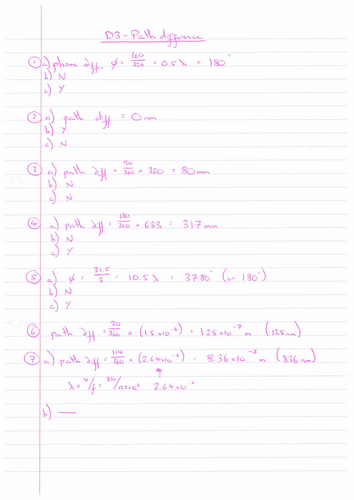 D3 - Path difference
① a) phase diff. φ = 160/320 = 0.5λ = 180°
b) N
c) Y
② a) path diff = 0mm
b) Y
c) N
③ a) path diff = 90/360 × 320 = 80mm
b) N
c) N
④ a) path diff = 180/360 × 633 = 317mm
b) N
c) Y
⑤ a) φ = 31.5/3 = 10.5λ = 3780° (or 180°)
b) N
c) Y
⑥ path diff = 30/360 × (1.5×10⁻⁶) = 1.25×10⁻⁷ m (125nm)
⑦ a) path diff = 114/360 × (2.64×10⁻⁶) = 8.36×10⁻⁷ m (836nm)
λ = v/f = 2.64×10⁻⁶
b) —